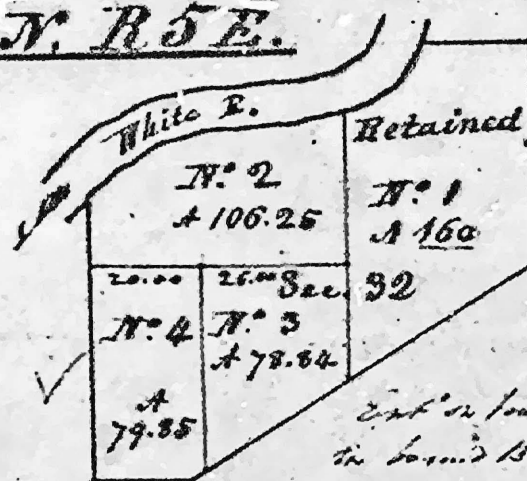 N. R 5 E.
White R.
Retained
No. 2
A 106.25
No. 1
A 160
20.00
26.00
Sec. 32
No. 4
No. 3
A 78.84
A
79.85